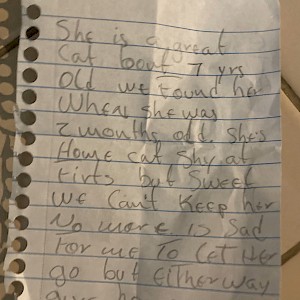 She is a great
Cat bout 7 yrs
Old we found her
When she was
2 months old. She's
Home cat Shy at
Firts but Sweet
We Can't Keep her
No more is Sad
For me To Let Her
go but Either way
give